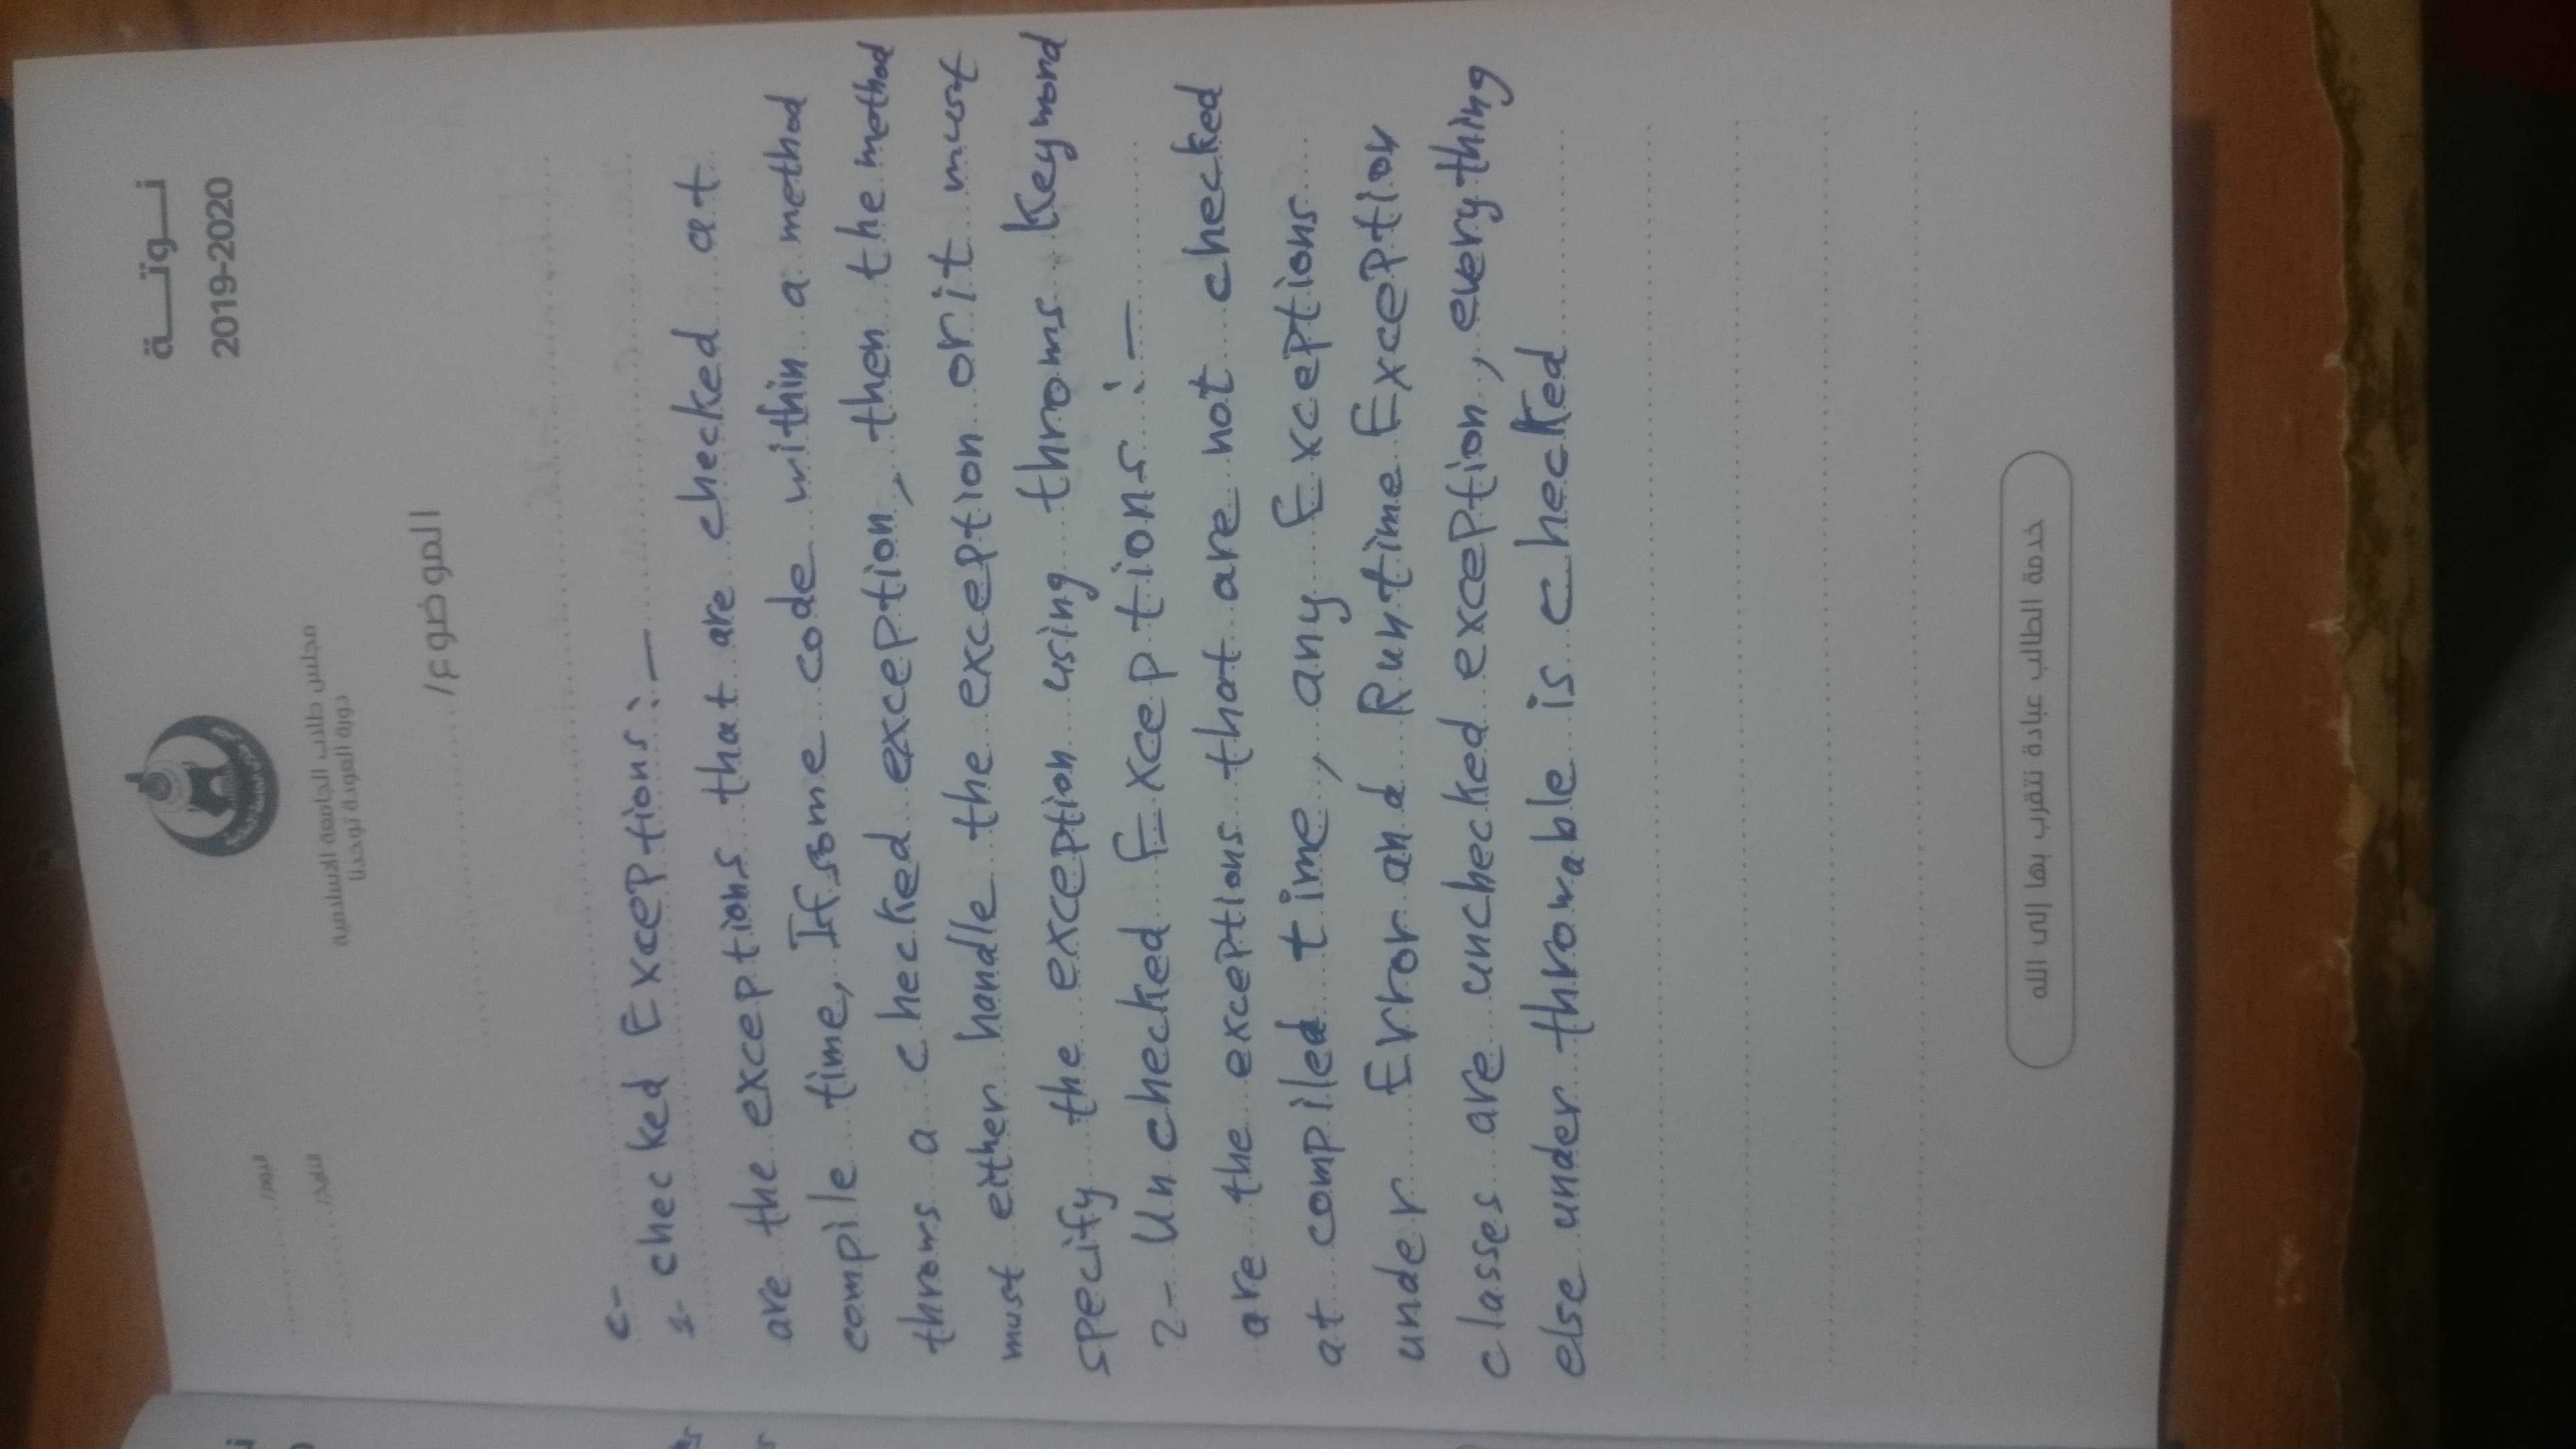 نـــوتـــة
2019-2020
مجلس طلاب الجامعة الإسلامية
دورة العودة توحدنا
اليوم/
التاريخ/
الموضوع/
c-
1- checked Exceptions:-
are the exceptions that are checked at
compile time, If some code within a method
throws a checked exception, then the method
must either handle the exception or it must
specify the exception using throws keyword
2- Un checked Exceptions:-
are the exceptions that are not checked
at compiled time, any Exceptions
under Error and Runtime Exception
classes are unchecked exception, every thing
else under throwable is checked
خدمة الطالب عبادة نتقرب بها إلى الله